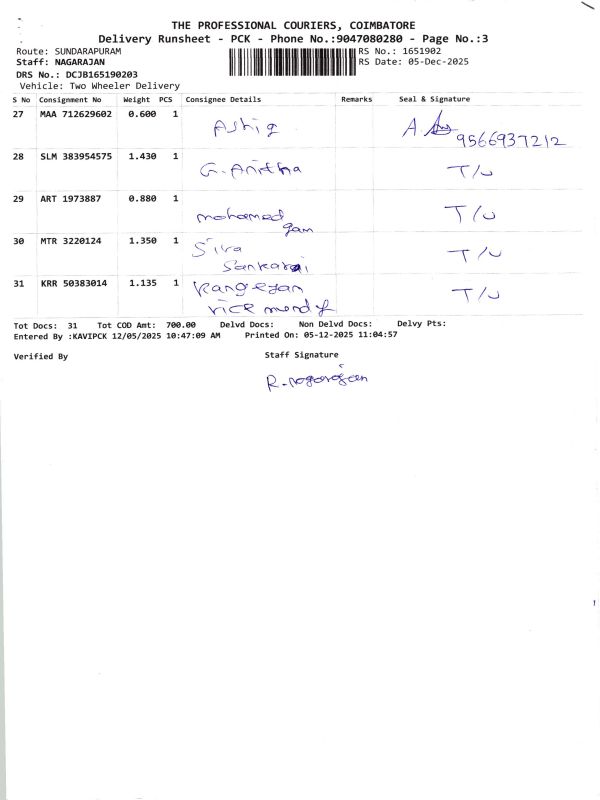 THE PROFESSIONAL COURIERS, COIMBATORE
Delivery Runsheet - PCK - Phone No.:9047080280 - Page No.:3
Route: SUNDARAPURAM RS No.: 1651902
Staff: NAGARAJAN RS Date: 05-Dec-2025
DRS No.: DCJB165190203
Vehicle: Two Wheeler Delivery
S No Consignment No Weight PCS Consignee Details Remarks Seal & Signature
27 MAA 712629602 0.600 1 Ashiq A. 9566937212
28 SLM 383954575 1.430 1 G. Anitha T/U
29 ART 1973887 0.880 1 mohamed T/U
gam
30 MTR 3220124 1.350 1 Siva T/U
31 KRR 50383014 1.135 1 T/U
rice
Tot Docs: 31 Tot COD Amt: 700.00 Delvd Docs: Non Delvd Docs: Delvy Pts:
Entered By :KAVIPCK 12/05/2025 10:47:09 AM Printed On: 05-12-2025 11:04:57
Verified By Staff Signature
R. nagarajan